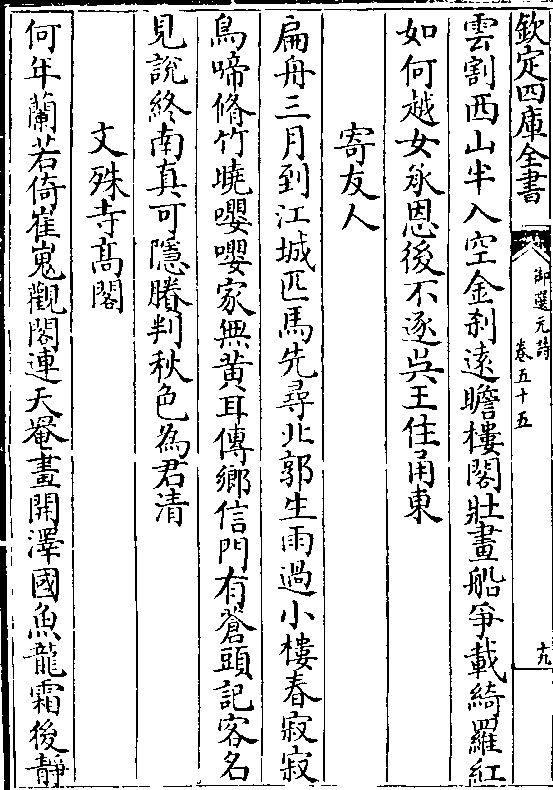 欽定四庫全書
御選元詩
卷五十五
十九
雲割西山半入空金刹遠瞻樓閣壯畫船爭載綺羅紅
如何越女承恩後不逐吳王住甬東
寄友人
扁舟三月到江城匹馬先尋北郭生雨過小樓春寂寂
鳥啼脩竹曉嚶嚶家無黄耳傳鄉信門有蒼頭記客名
見說終南真可隱賸判秋色為君清
文殊寺高閣
何年蘭若倚崔嵬觀閣連天罨畫開澤國魚龍霜後靜